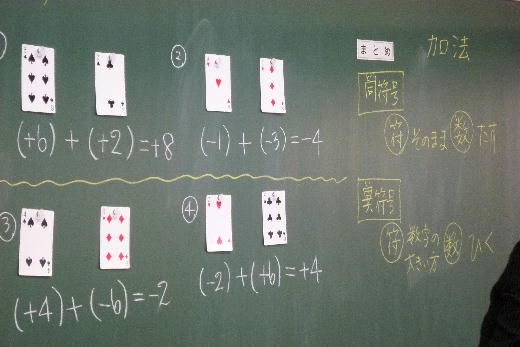 ②
(+6)+(+2)=+8
(-1)+(-3)=-4
③
④
(+4)+(-6)=-2
(-2)+(+6)=+4
まとめ
加法
同符号
符 そのまま 数 たす
異符号
符 数字の大きい方 数 ひく